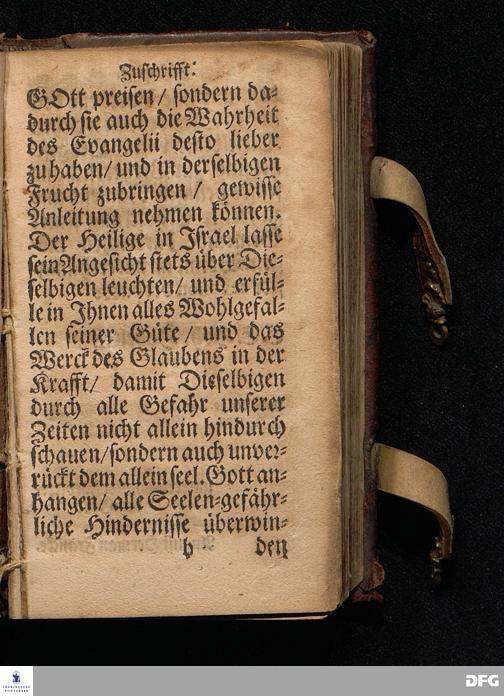 Zuschrifft:
GOtt preisen/ sondern da-
durch sie auch die Wahrheit
des Evangelii desto lieber
zu haben/ und in derselbigen
Frucht zubringen/ gewisse
Anleitung nehmen können.
Der Heilige in Israel lasse
sein Angesicht stets über Die-
selbigen leuchten/ und erfül-
le in Ihnen alles Wohlgefal-
len seiner Güte/ und das
Werck des Glaubens in der
Krafft/ damit Dieselbigen
durch alle Gefahr unserer
Zeiten nicht allein hindurch
schauen/ sondern auch unver-
rückt dem allein seel. Gott an-
hangen/ alle Seelen-gefähr-
liche Hindernisse überwin-
b den
FRANCKESCHE
STIFTUNGEN
DFG